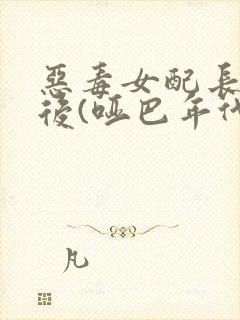 惡毒女配長
後(啞巴年代
凡